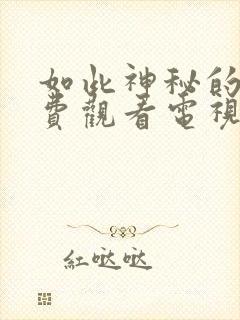 如此神秘的
費觀看電視
紅哒哒